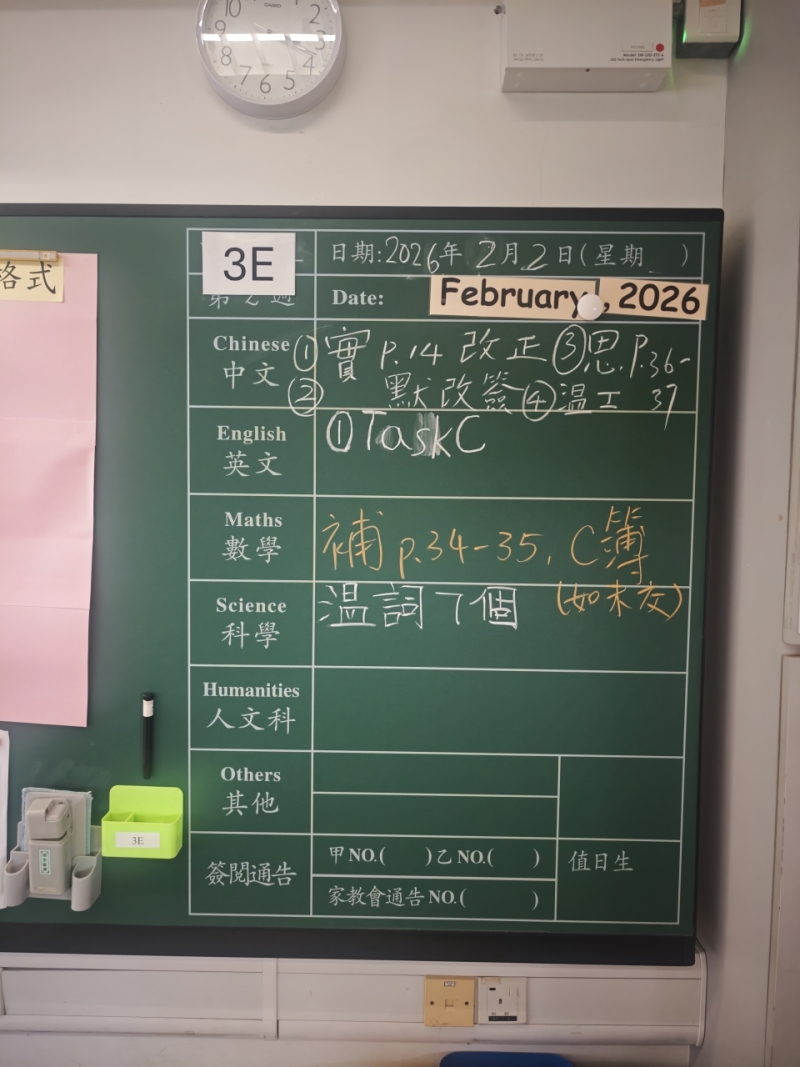 10 2
9 3
8 4
7 6 5
CASIO
格式
3E
日期:2026年 2月2日(星期 )
Date: February, 2026
Chinese
中文
①實 P.14 改正 ③思 P.36-
② 默改簽 ④温工 37
English
英文
①Task C
Maths
數學
補 p.34-35, C簿
(如未交)
Science
科學
温詞7個
Humanities
人文科
Others
其他
簽閱通告
甲NO.( )乙NO.( )
值日生
家教會通告NO.( )
3E